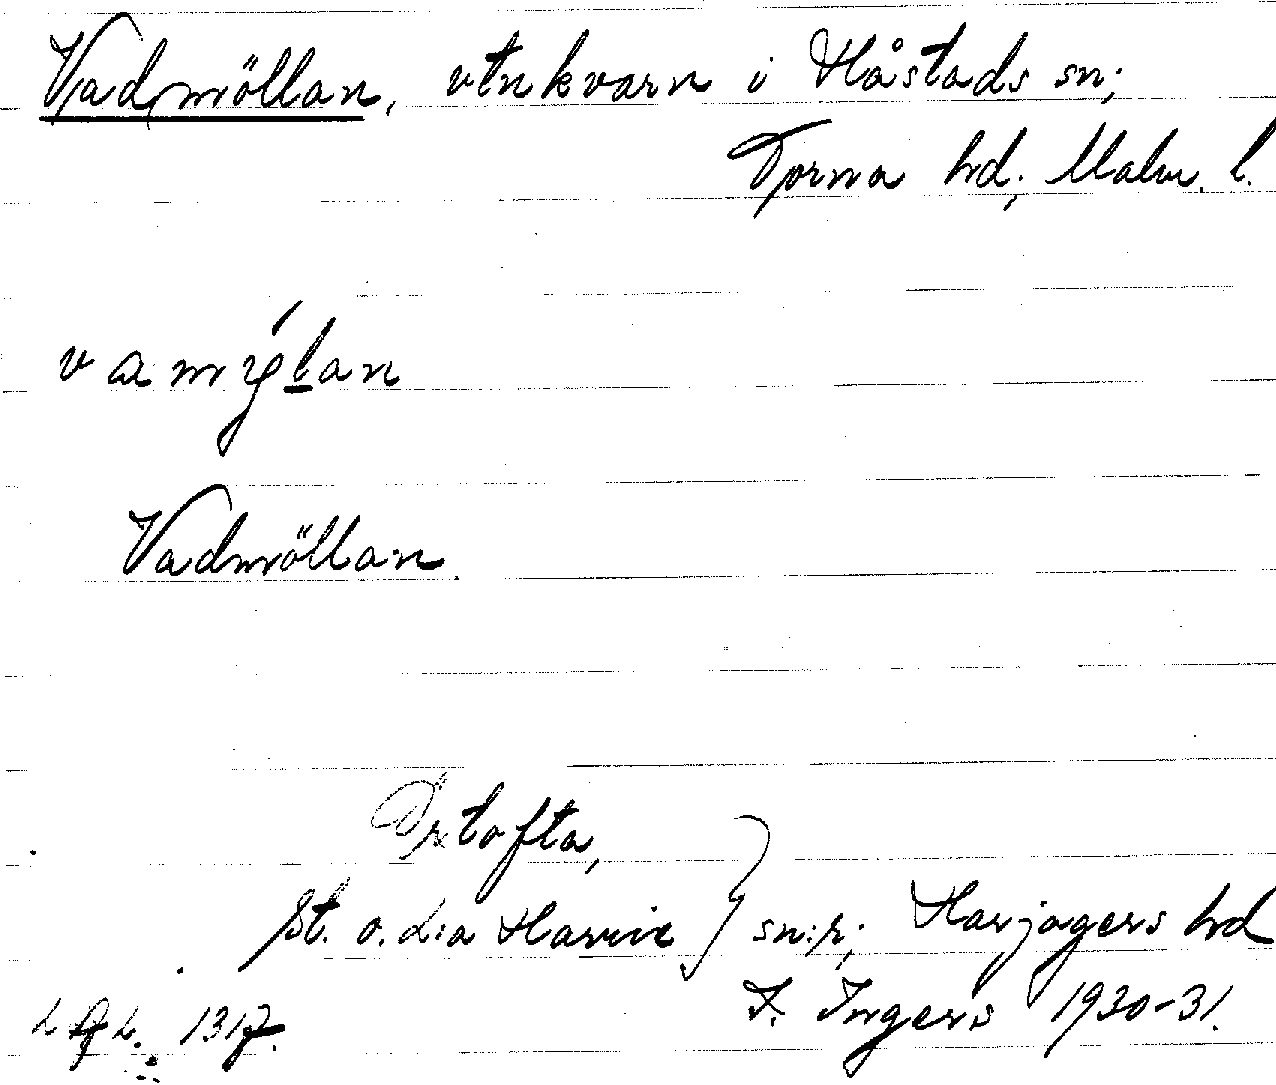 Vadmöllan, vtnkvarn i Håstads sn;
Torna hd; Malm. l.
Vadmöllan.
Örtofta,
St. o. L:a Harrie } sn:r; Harjagers hd
I. Ingers 1930-31.
1317.